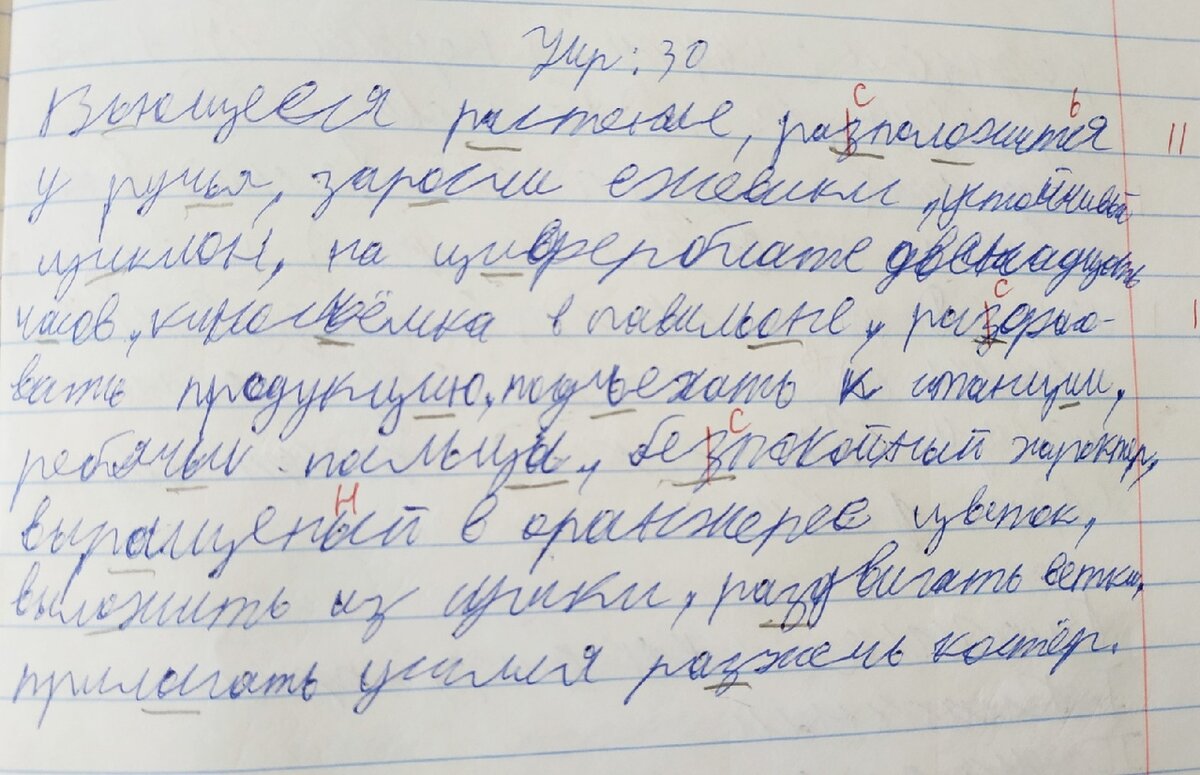 Упр: 30
с ь
Вьющееся растение, разположится II
у ручья, заросли ежевики, устойчивый
циклон, на цифероблате двенадцать
с
часов, киносъёмка в павильоне, разфасо- I
вать продукцию, подъехать к станции,
с
ребячьи пальцы, безпокойный характер,
н
выращеный в оранжерее цветок,
выложить из сумки, раздвигать ветки,
прилагать усилия разжечь костёр.